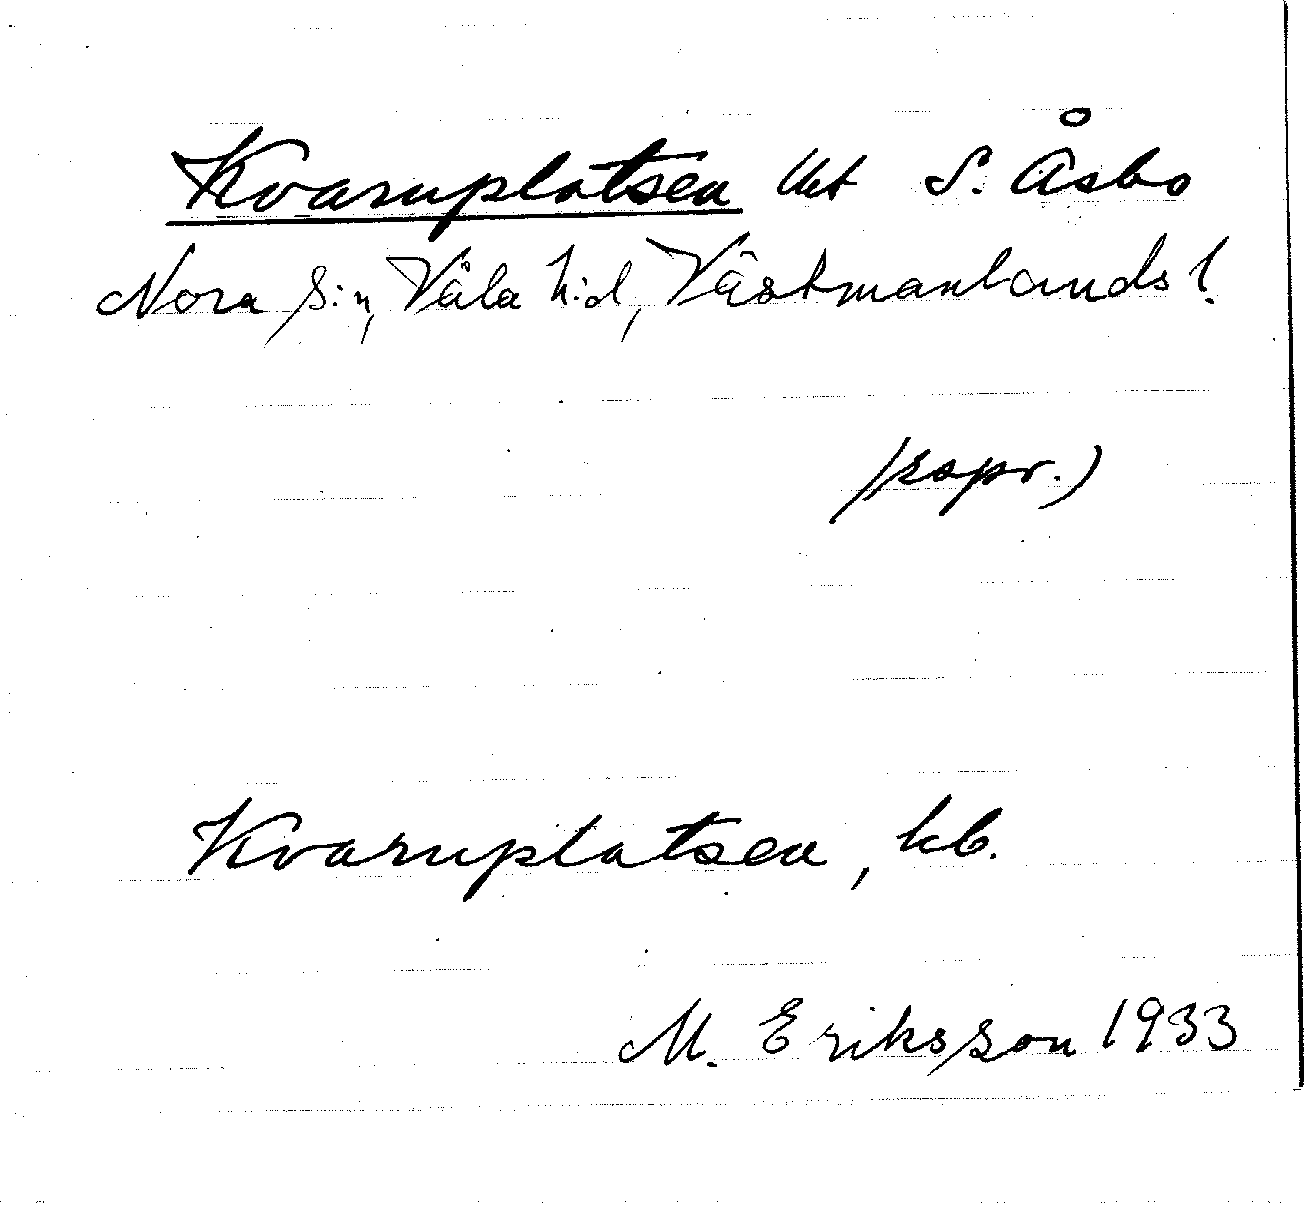 Kvarnplatsen lht S. Åsbo
Nora s:n, Våla h:d, Västmanlands l.
(rspr.)
Kvarnplatsen, kb.
M. Eriksson 1933